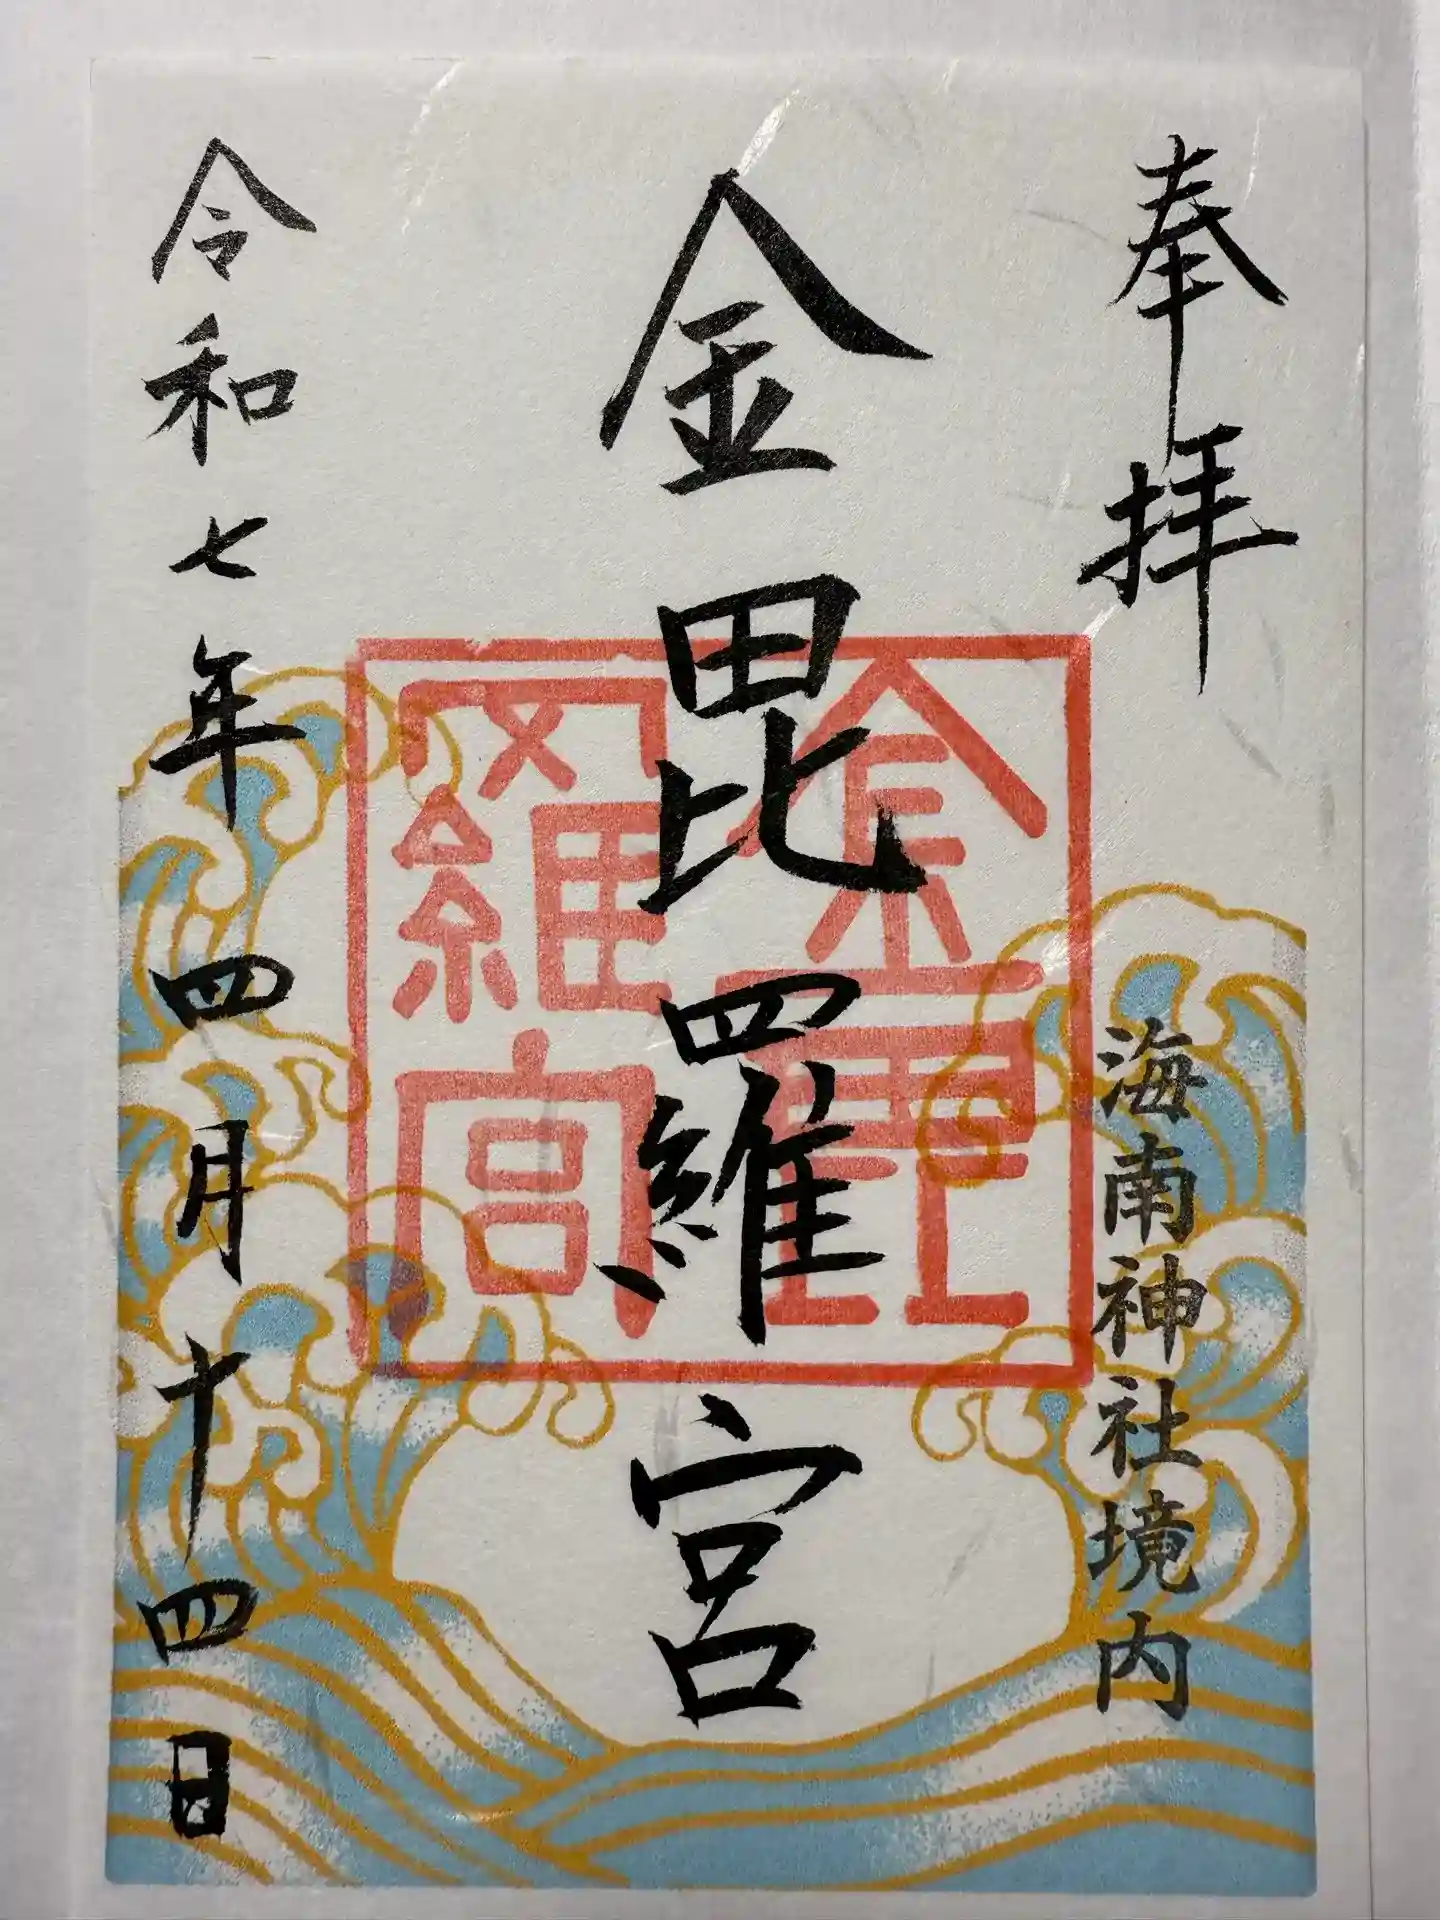 奉拝
海南神社境内
金毘羅宮
金毘
羅宮
令和七年四月十四日